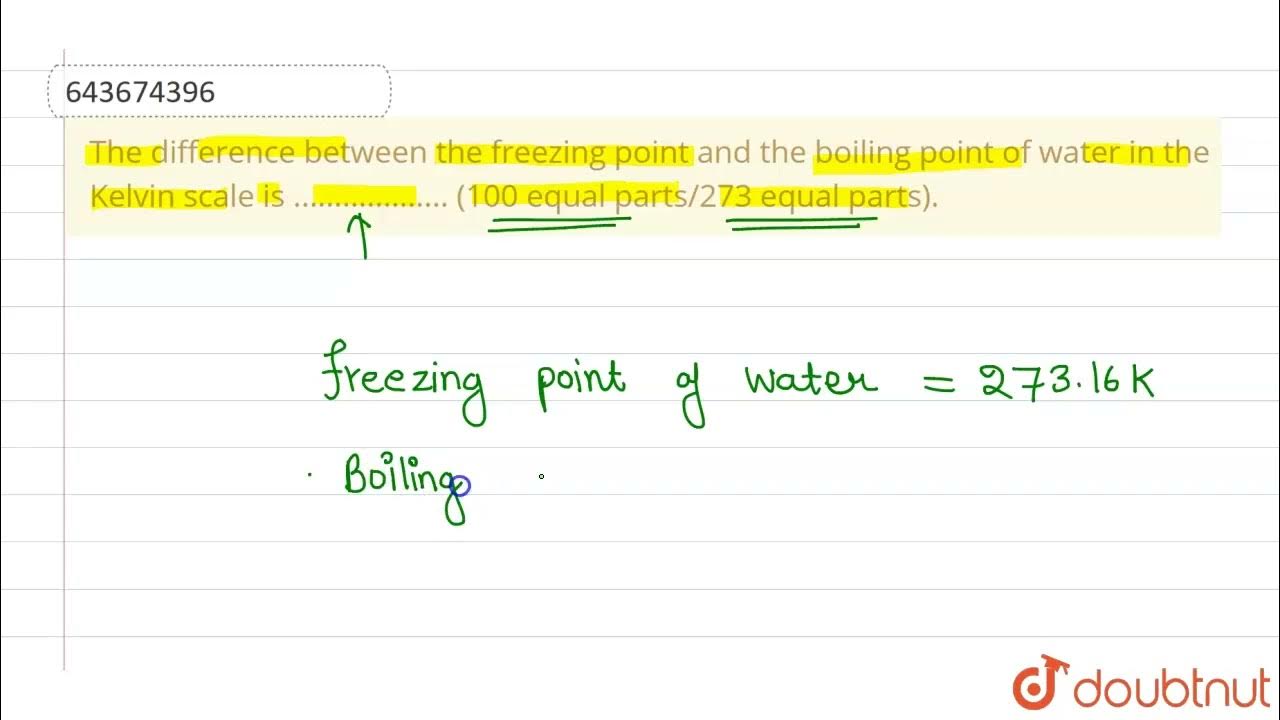 643674396
The difference between the freezing point and the boiling point of water in the
Kelvin scale is ................... (100 equal parts/273 equal parts).
freezing point of water = 273.16 K
Boiling
doubtnut